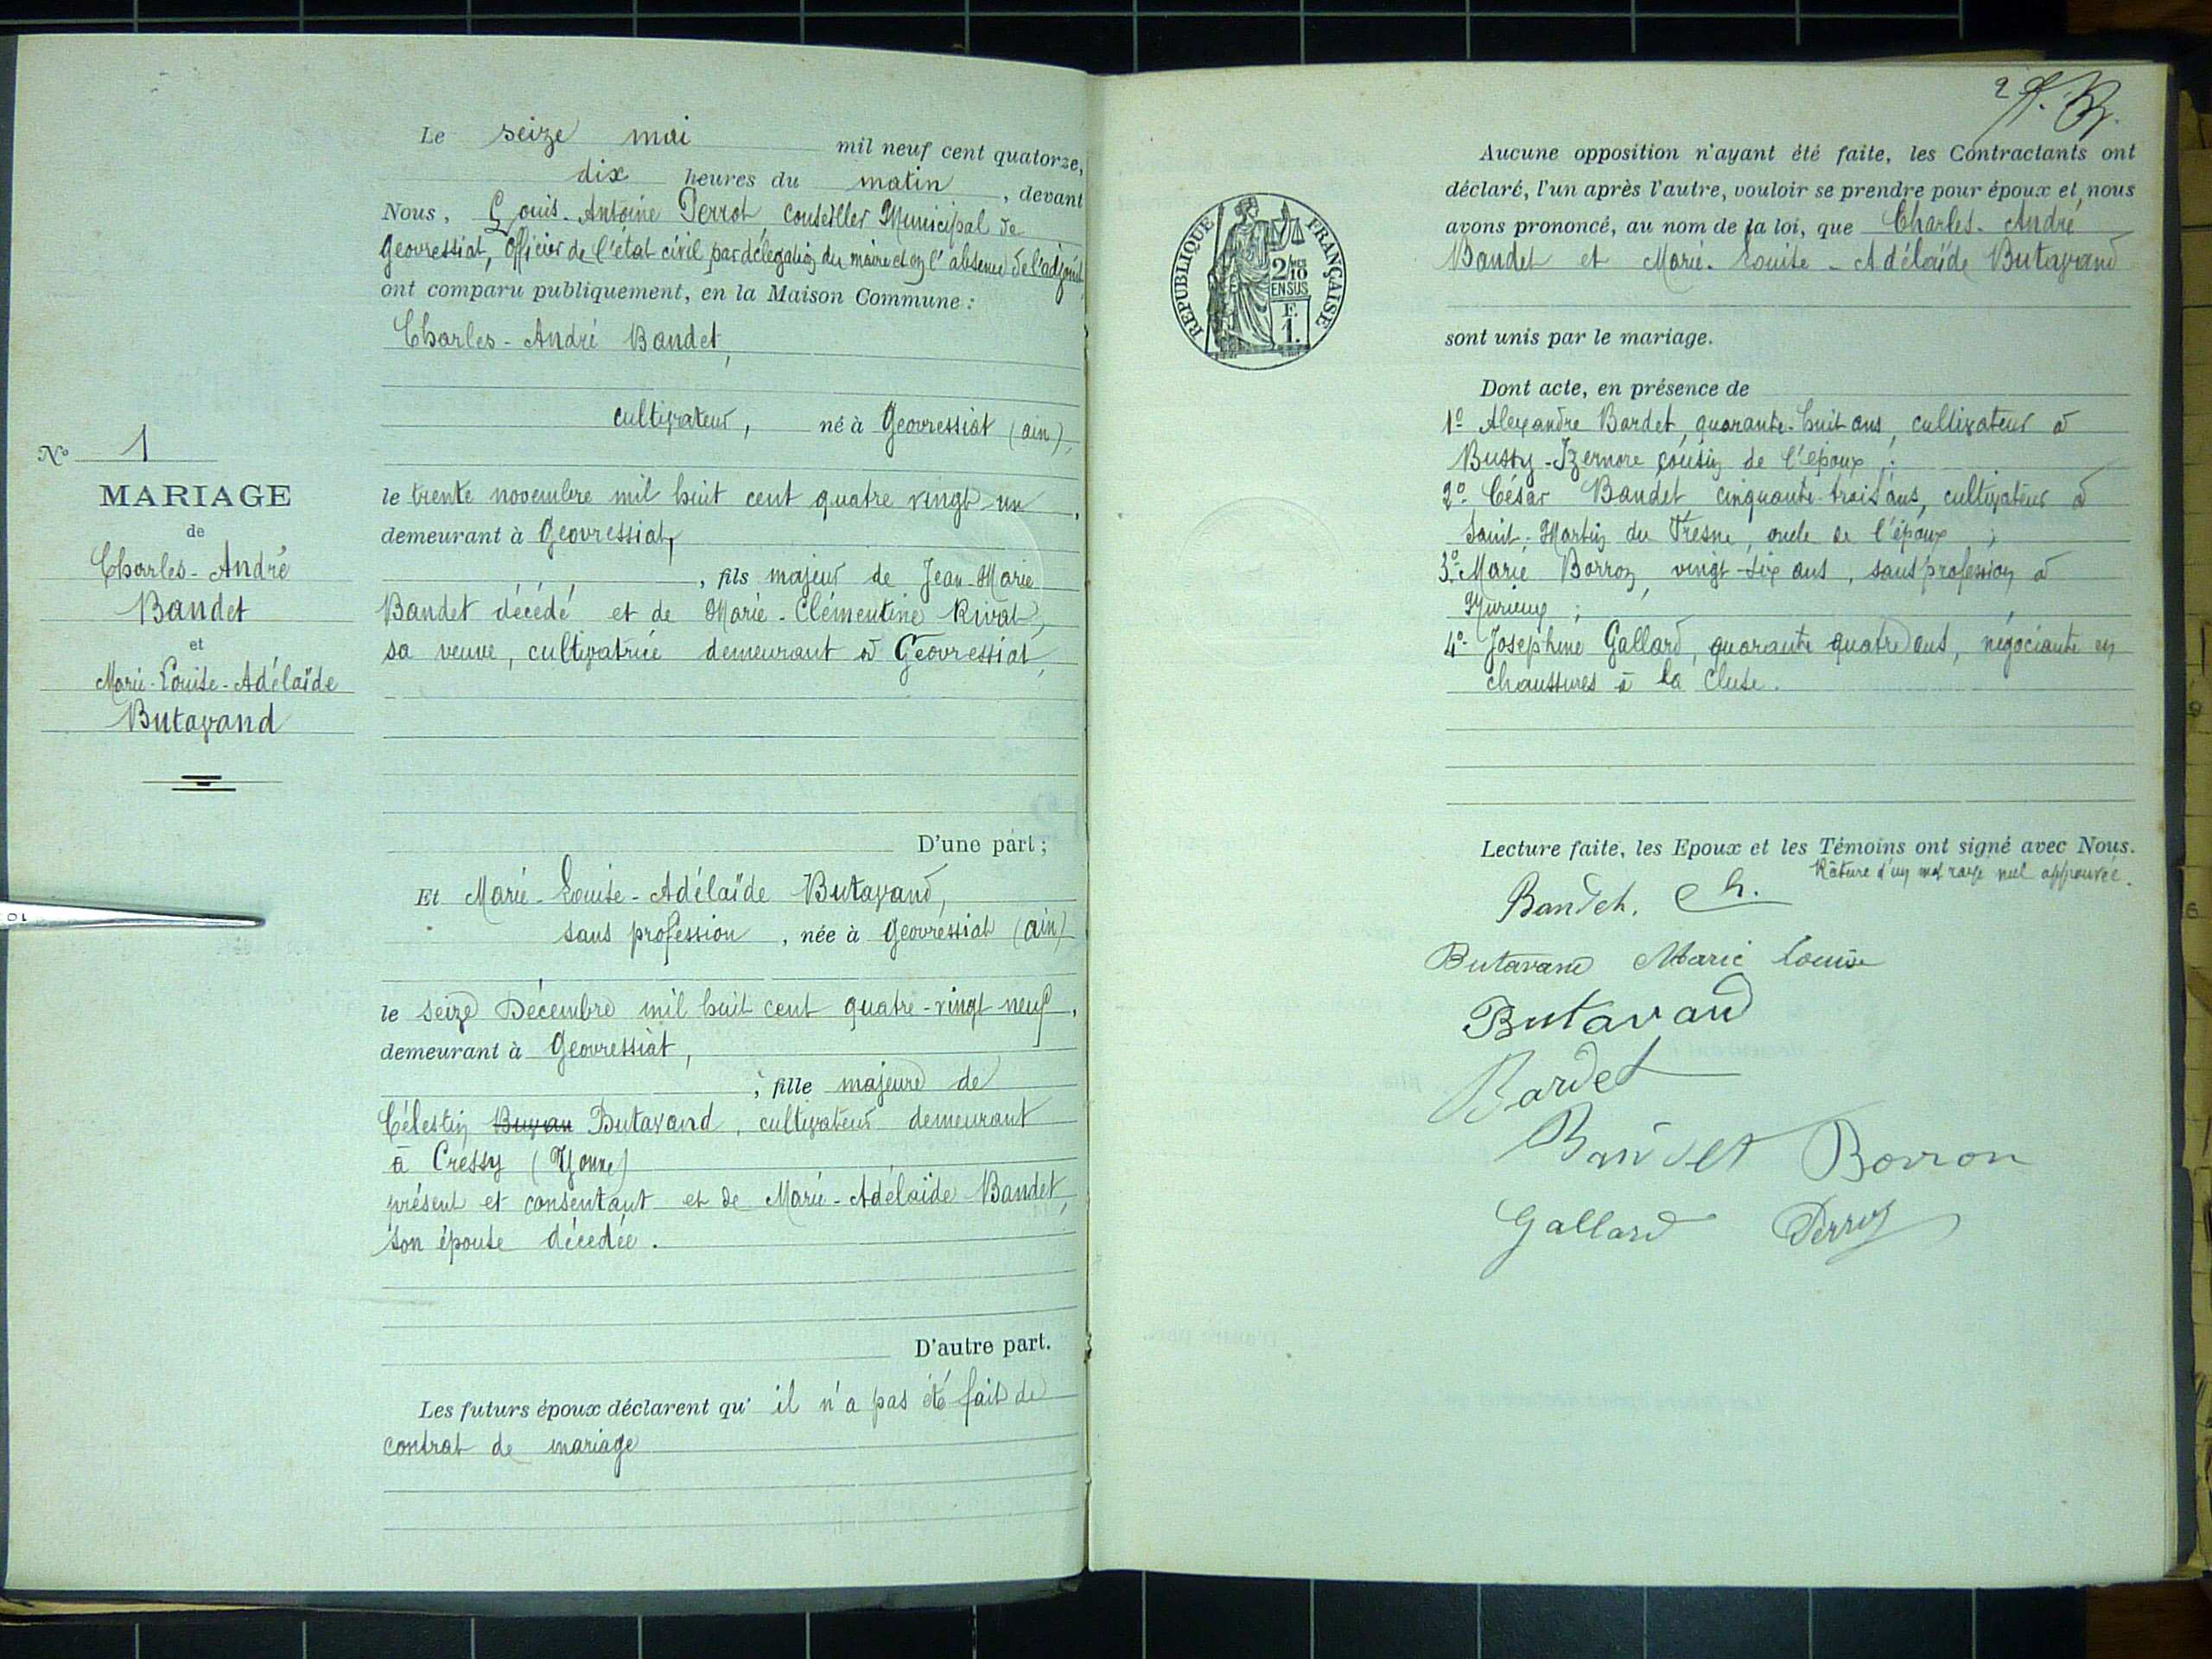 Le seize mai mil neuf cent quatorze,
dix heures du matin, devant
Nous, Louis-Antoine Perrot, Conseiller Municipal de
Geovressiat, Officier de l'état civil par délégation du maire et en l'absence de l'adjoint,
ont comparu publiquement, en la Maison Commune :
Charles-André Bandet,
cultivateur, né à Geovressiat (ain),
le trente novembre mil huit cent quatre vingt-un,
demeurant à Geovressiat,
, fils majeur de Jean-Marie
Bandet décédé et de Marie-Clémentine Rivat,
sa veuve, cultivatrice demeurant à Geovressiat,
D'une part ;
Et Marie-Louise-Adélaïde Butavand,
sans profession, née à Geovressiat (ain)
le seize Décembre mil huit cent quatre-vingt neuf,
demeurant à Geovressiat,
; fille majeure de
Célestin Buvan Butavand, cultivateur demeurant
à Cressy (Yonne)
présent et consentant et de Marie-Adélaïde Bandet,
son épouse décédée.
D'autre part.
Les futurs époux déclarent qu'il n'a pas été fait de
contrat de mariage
No 1
MARIAGE
de
Charles-André
Bandet
et
Marie-Louise-Adélaïde
Butavand
2
REPUBLIQUE FRANÇAISE
2/10
EN SUS
F.
1.
Aucune opposition n'ayant été faite, les Contractants ont
déclaré, l'un après l'autre, vouloir se prendre pour époux et nous
avons prononcé, au nom de la loi, que Charles-André
Bandet et Marie-Louise-Adélaïde Butavand
sont unis par le mariage.
Dont acte, en présence de
1º Alexandre Bardet, quarante-huit ans, cultivateur à
Bussy-Izernore cousin de l'époux ;
2º César Bandet cinquante-trois ans, cultivateur à
Saint-Martin du Fresne, oncle de l'époux ;
3º Marie Borron, vingt-six ans, sans profession à
Murieux ;
4º Joséphine Gallard, quarante quatre ans, négociante en
chaussures à la Cluse.
Lecture faite, les Epoux et les Témoins ont signé avec Nous.
Râture d'un mot rayé nul approuvée.
Bandet. Ch.
Butavand Marie Louise
Butavand
Bardet
Bandet Borron
Gallard Perrot